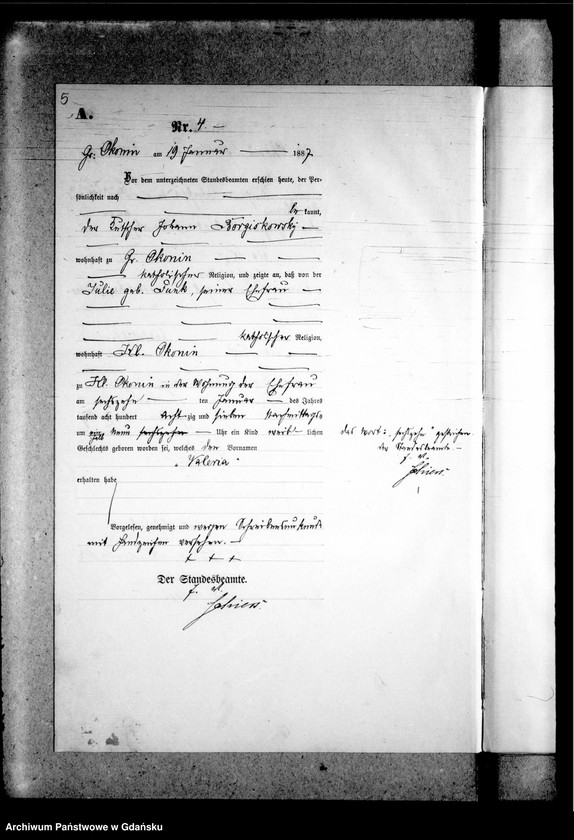 5
A.
Nr. 4.
Gr: Okonin am 19 Januar 1887
Vor dem unterzeichneten Standesbeamten erschien heute, der Per-
sönlichkeit nach
be kannt,
der Kutscher Johann
wohnhaft zu Gr. Okonin
katholischer Religion, und zeigte an, daß von der
Julie geb. Funk, seiner Ehefrau
katholischer Religion,
wohnhaft Kl. Okonin
zu Kl. Okonin in der Wohnung der Ehefrau
am sechszehn ten Januar des Jahres
tausend acht hundert acht zig und sieben Nachmittags
um halb neun Uhr ein Kind weib lichen
Geschlechts geboren worden sei, welches den Vornamen
„Valeria“
erhalten habe
Vorgelesen, genehmigt und wegen Schreibensunkunde
mit Handzeichen versehen.
+ + +
Der Standesbeamte.
das Wort: gestrichen
der Standesbeamte
Archiwum Państwowe w Gdańsku